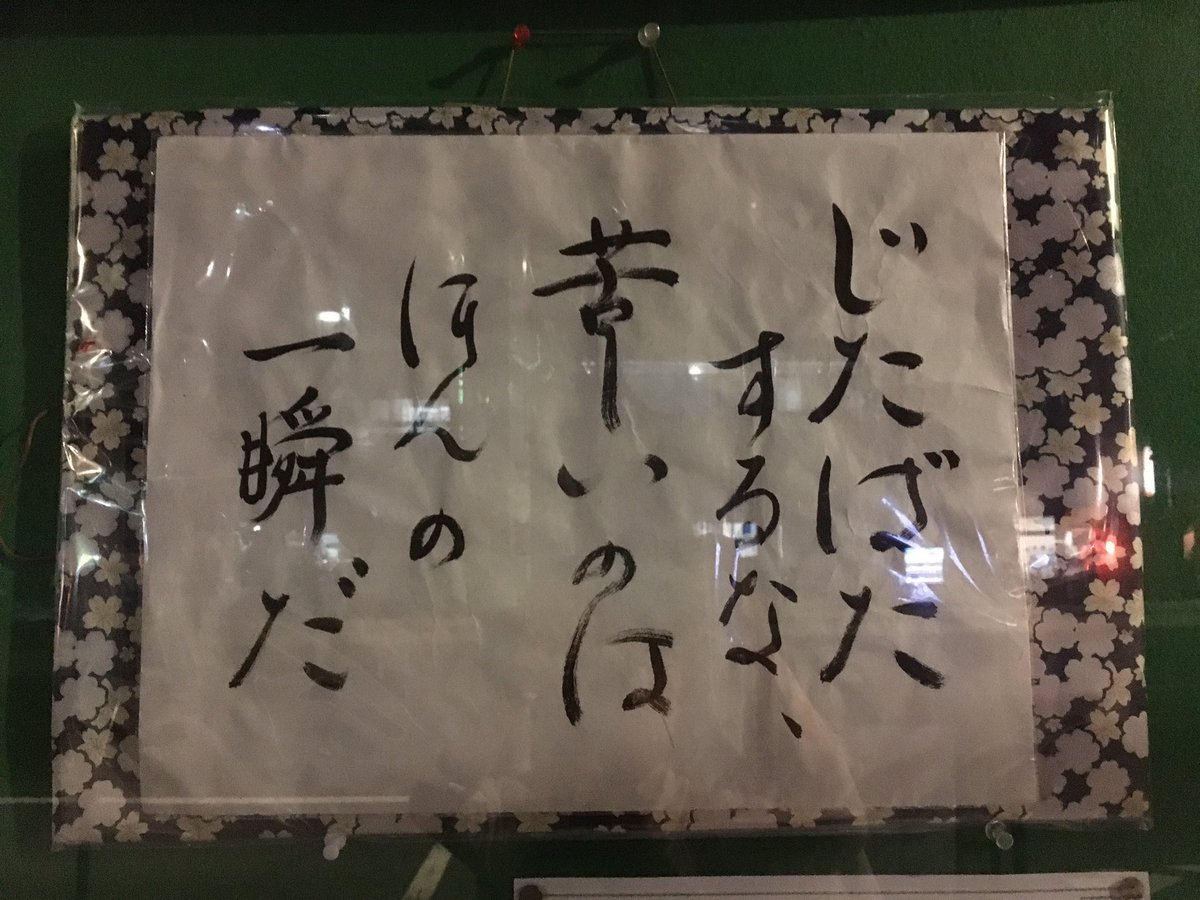 じたばた
するな、
苦いのは
ほんの
一瞬だ